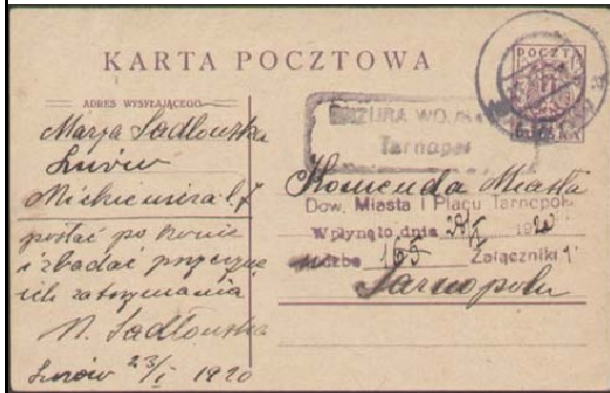 KARTA POCZTOWA
POCZTA
POLSKA
ADRES WYSYŁAJĄCEGO
Marya Sadłowska
Lwów
Mickiewicza l. 7
posłać po
i zbadać przyczynę
ich zatrzymania
M. Sadłowska
Lwów 23/I 1920
CENZURA
Tarnopol
Komenda Miasta
Dow. Miasta i Placu Tarnopol
Wpłynęło dnia 1920
Liczba 165 Załączniki 1
Tarnopolu